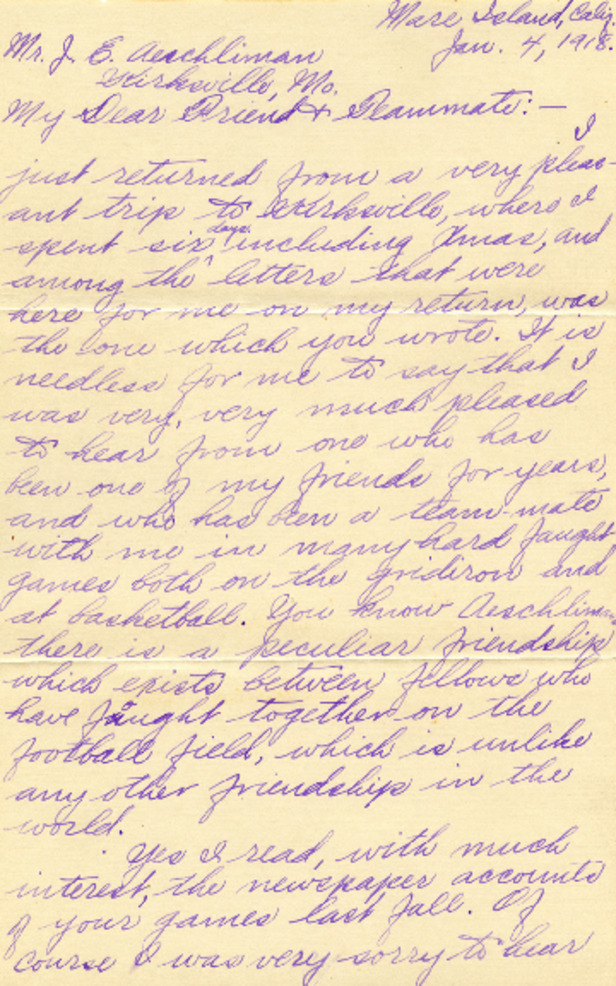 Mare Island, Calif.
Jan. 4, 1918.
Mr. J. E. Aeschliman
Kirksville, Mo.
My Dear Friend & Teammate: —
I
just returned from a very pleas-
ant trip to Kirksville, where I
spent six days including Xmas, and
among the letters that were
here for me on my return, was
the one which you wrote. It is
needless for me to say that I
was very, very much pleased
to hear from one who has
been one of my friends for years,
and who has been a team-mate
with me in many hard faught
games both on the gridiron and
at basketball. You know Aeschliman
there is a peculiar friendship
which exists between fellows who
have fought together on the
football field, which is unlike
any other friendship in the
world.
Yes I read, with much
interest, the newspaper accounts
of your games last fall. Of
course I was very sorry to hear